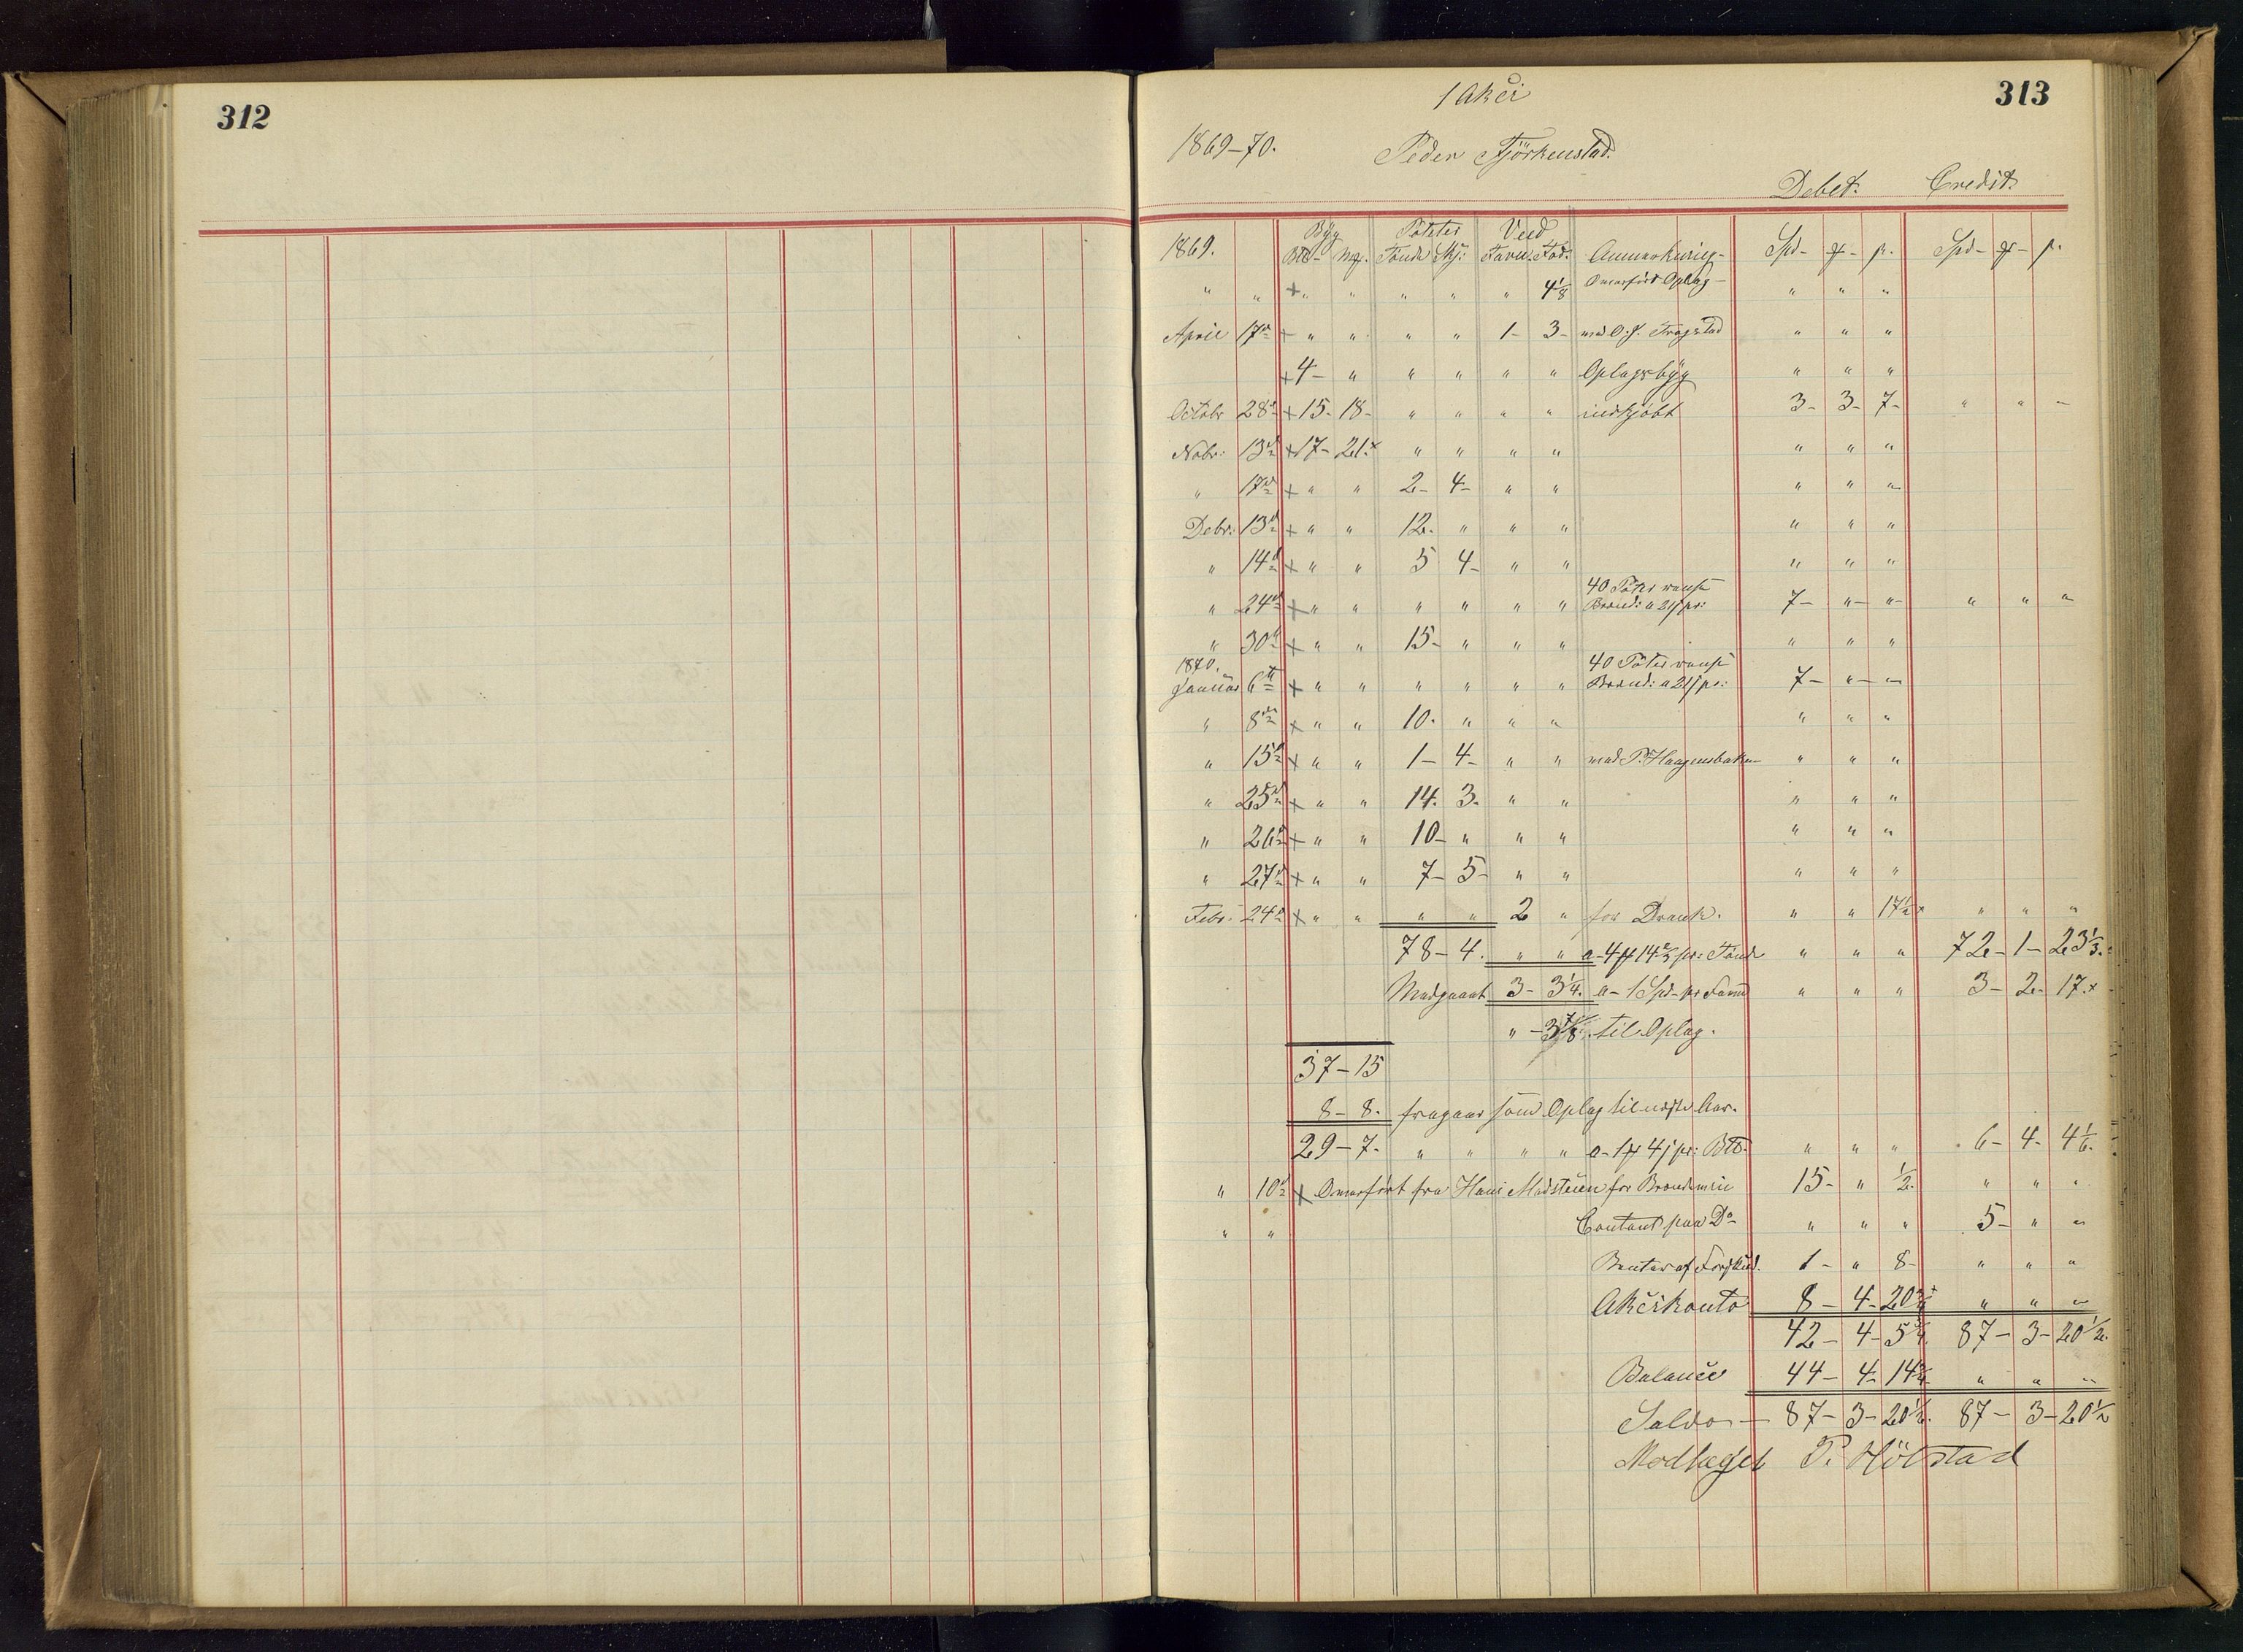 312
313
1 Akci
1869-70. Peder Fjörkenstad.
Debet. Credit.
Byg Poteter Ved
1869. Btt- Mg. Tønde Skj: Favn. Fod. Anmærkning- Spd- p.- Spd- p.
" " + " " " " " 4 1/8 Overført Oplag- " " "
April 17d + " " " " 1- 3- Fragstad " " "
+ 4- " " " " " Oplagsbÿg " " "
Octobr 28d + 15- 18- " " " " indkjöbt 3- 3- 7- " " "
Nobr: 13d + 17- 21.x " " " " " " "
" 17d + " " 2- 4- " " " " "
Debr: 13d + " " 12. " " " " " "
" 14d + " " 5 4- " " " " "
" 24d + " " " " " " 40 Potter Brænd: a 21 pr: 7- "- "- " " "
" 30d + " " 15- " " " " " "
1870.
Januar 6te + " " " " " " 40 Potter Brænd: a 21 pr: 7- "- "-
" 8de + " " 10. " " " " " "
" 15d + " " 1- 4- " " P. Haagensbakken " " "
" 25d + " " 14. 3. " " " " "
" 26d + " " 10- " " " " " "
" 27d + " " 7- 5- " " " " "
Febr. 24d + " " " " 2 " for Drank. " " 17 1/2 x " " "
78-4. " " a-4 14 2/3 pr: Tønde " " " 72-1-23 1/3.
3- 3 1/4. a-1 Spd- pr Favn " " " 3- 2- 17.x
" -3 7/8. til Oplag.
37-15
8-8. fragaar som Oplag til næste Aar.
29-7. " " " " a-1 4 pr: Btt- " " " 6- 4- 4 1/6.
" 10d + Overført fra Hans Madstuen for Brændeviin 15- " 1/2. " " "
" " Contant paa Do " " " 5- " "
Renter af Forskud. 1- " 8- " " "
Akcikonto 8- 4- 20 3/4 " " "
42- 4- 5 3/4. 87- 3- 20 1/2.
Balance 44- 4- 14 3/4. " " "
Saldo- 87- 3- 20 1/2. 87- 3- 20 1/2
Modtaget P. Hölstad